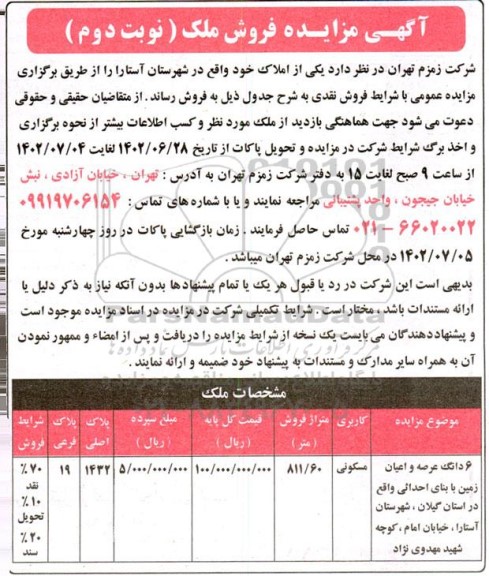 آگهی مزایده فروش ملک ( نوبت دوم )
شرکت زمزم تهران در نظر دارد یکی از املاک خود واقع در شهرستان آستارا را از طریق برگزاری
مزایده عمومی با شرایط فروش نقدی به شرح جدول ذیل به فروش رساند . از متقاضیان حقیقی و حقوقی
دعوت می شود جهت هماهنگی بازدید از ملک مورد نظر و کسب اطلاعات بیشتر از نحوه برگزاری
و اخذ برگ شرایط شرکت در مزایده و تحویل پاکات از تاریخ ۱۴۰۲/۰۶/۲۸ لغایت ۱۴۰۲/۰۷/۰۴
از ساعت ۹ صبح لغایت ۱۵ به دفتر شرکت زمزم تهران به آدرس : تهران ، خیابان آزادی ، نبش
خیابان جیحون ، واحد پشتیبانی مراجعه نمایند و یا با شماره های تماس : ۰۹۹۱۹۷۰۶۱۵۴
۰۲۱-۶۶۰۲۰۰۲۲ تماس حاصل فرمایند . زمان بازگشایی پاکات در روز چهارشنبه مورخ
۱۴۰۲/۰۷/۰۵ در محل شرکت زمزم تهران میباشد .
بدیهی است این شرکت در رد یا قبول هر یک یا تمام پیشنهادها بدون آنکه نیاز به ذکر دلیل یا
ارائه مستندات باشد ، مختار است . شرایط تکمیلی شرکت در مزایده در اسناد مزایده موجود است
و پیشنهاددهندگان می بایست یک نسخه از شرایط مزایده را دریافت و پس از امضاء و ممهور نمودن
آن به همراه سایر مدارک و مستندات به پیشنهاد خود ضمیمه و ارائه نمایند .
مشخصات ملک
موضوع مزایده کاربری متراژ فروش ( متر ) قیمت کل پایه ( ریال ) مبلغ سپرده ( ریال ) پلاک اصلی پلاک فرعی شرایط فروش
۶ دانگ عرصه و اعیان مسکونی ۸۱۱/۶۰ ۱۰۰/۰۰۰/۰۰۰/۰۰۰ ۵/۰۰۰/۰۰۰/۰۰۰ ۱۴۳۲ ۱۹ ۷۰٪
زمین با بنای احداثی واقع نقد
در استان گیلان ، شهرستان ۱۰٪
آستارا ، خیابان امام ، کوچه تحویل
شهید مهدوی نژاد ۲۰٪
سند